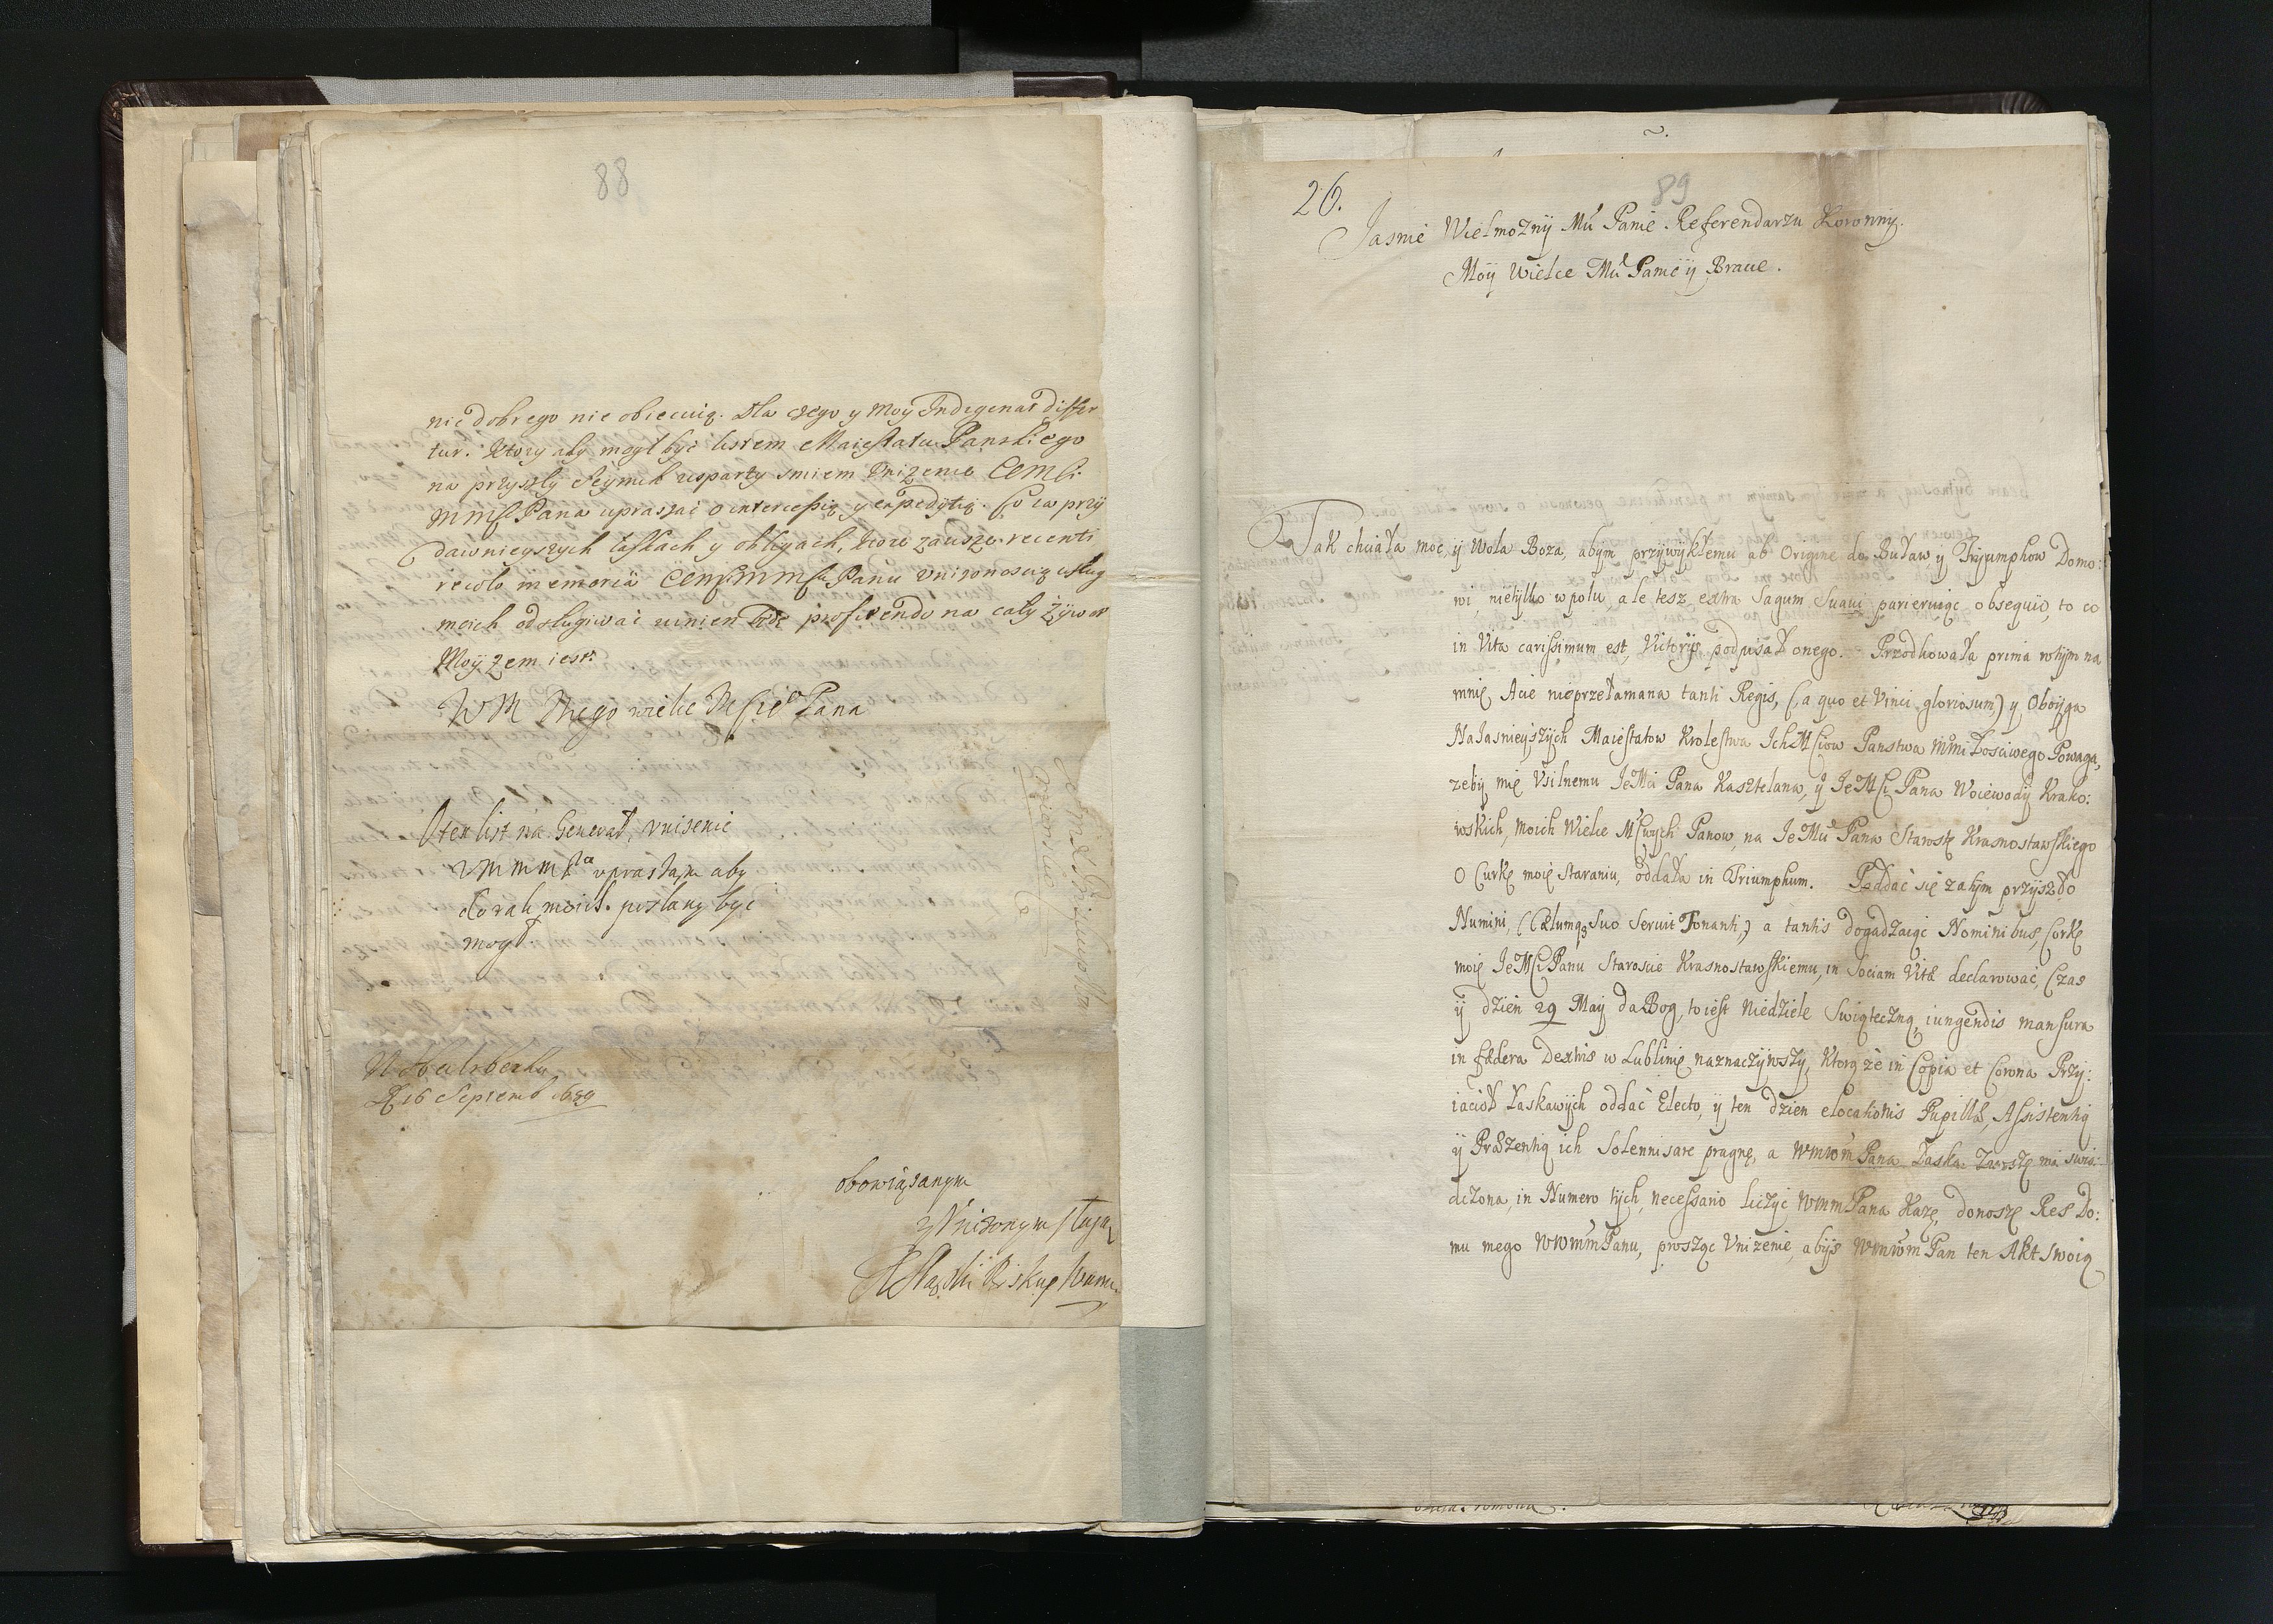 88
nic dobrego nie obiecuią. Dla czego y moy Indigenat differ
tur. Ktory aby mogł być listem Maiestatu Panskiego
na przyszły Seymik wsparty smiem Unizenie
Pana upraszać o intercessią y expedytią. Co ia przy
dawnieyszych łaskach y obligach, ktore zawsze recenti
recolo memoria Panu unizonoscią usług
moich odsługiwać winien profitendo na cały żywot
Moy zem iest.
WM Mego wielce Pana
O ten list na Generał, unisenie
upraszam aby
do rąk moich posłany być
mogł.
W Heilsberku
D 16 Septemb 1689
obowiąsanym
y Unizonym sługą
Biskup Warm.
26.
89
Jasnie Wielmozny Mci Panie Referendarzu Koronny.
Moy Wielce Mci Panie y Bracie.
Tak chciała moc, y Wola Boza, abym przywykłemu ab Origine do Buław y Tryumphow Domo:
wi, nietylko w polu, ale tesz extra Sagum Suaui parieruiąc obsequio, to co
in Vita carissimum est, Victoryę podpisał onego. Przodkowała prima w tym na
mnię Acie nieprzełamana tanti Regis, (a quo et Vinci gloriosum) y Oboyga
Naiasnieyszych Maiestatow Krolestwa Ich Mciow Panstwa miłosciwego Powaga,
zeby mię Vsilnemu JeMci Pana Kasztelana, y JeMCi Pana Woiewody Krako:
wskich, moich Wielce Mciwych Panow, na JeMci Pana Starostę Krasnostawskiego
O Curkę moię Staraniu, oddała in Triumphum. Poddać się zatym przyszło
Numini, (Cælumq3 Suo Seruit Tonanti,) a tantis dogadzaiąc Nominibus, Corkę
moię JeMCi Panu Staroscie Krasnostawskiemu, in Sociam Vitæ declarować, Czas
y dzien 29 May da Bog, to iest Niedziele Swiąteczną, iungendis mansura
in fædera Dextris w Lublinie naznaczywszy, Ktorą ze in Copia et Corona Przy:
iacioł Łaskawych oddać Electo, y ten dzien elocationis Pupillæ, Assistentią
y Præzentią ich Solennisare pragnę, a Pana Łaska Zawszę mi swia:
dczona, in Numero tych, necessario liczyć Pana Kazę, donoszę Res Do:
mu mego Panu, prosząc Unizenie, abys Pan ten Akt swoią